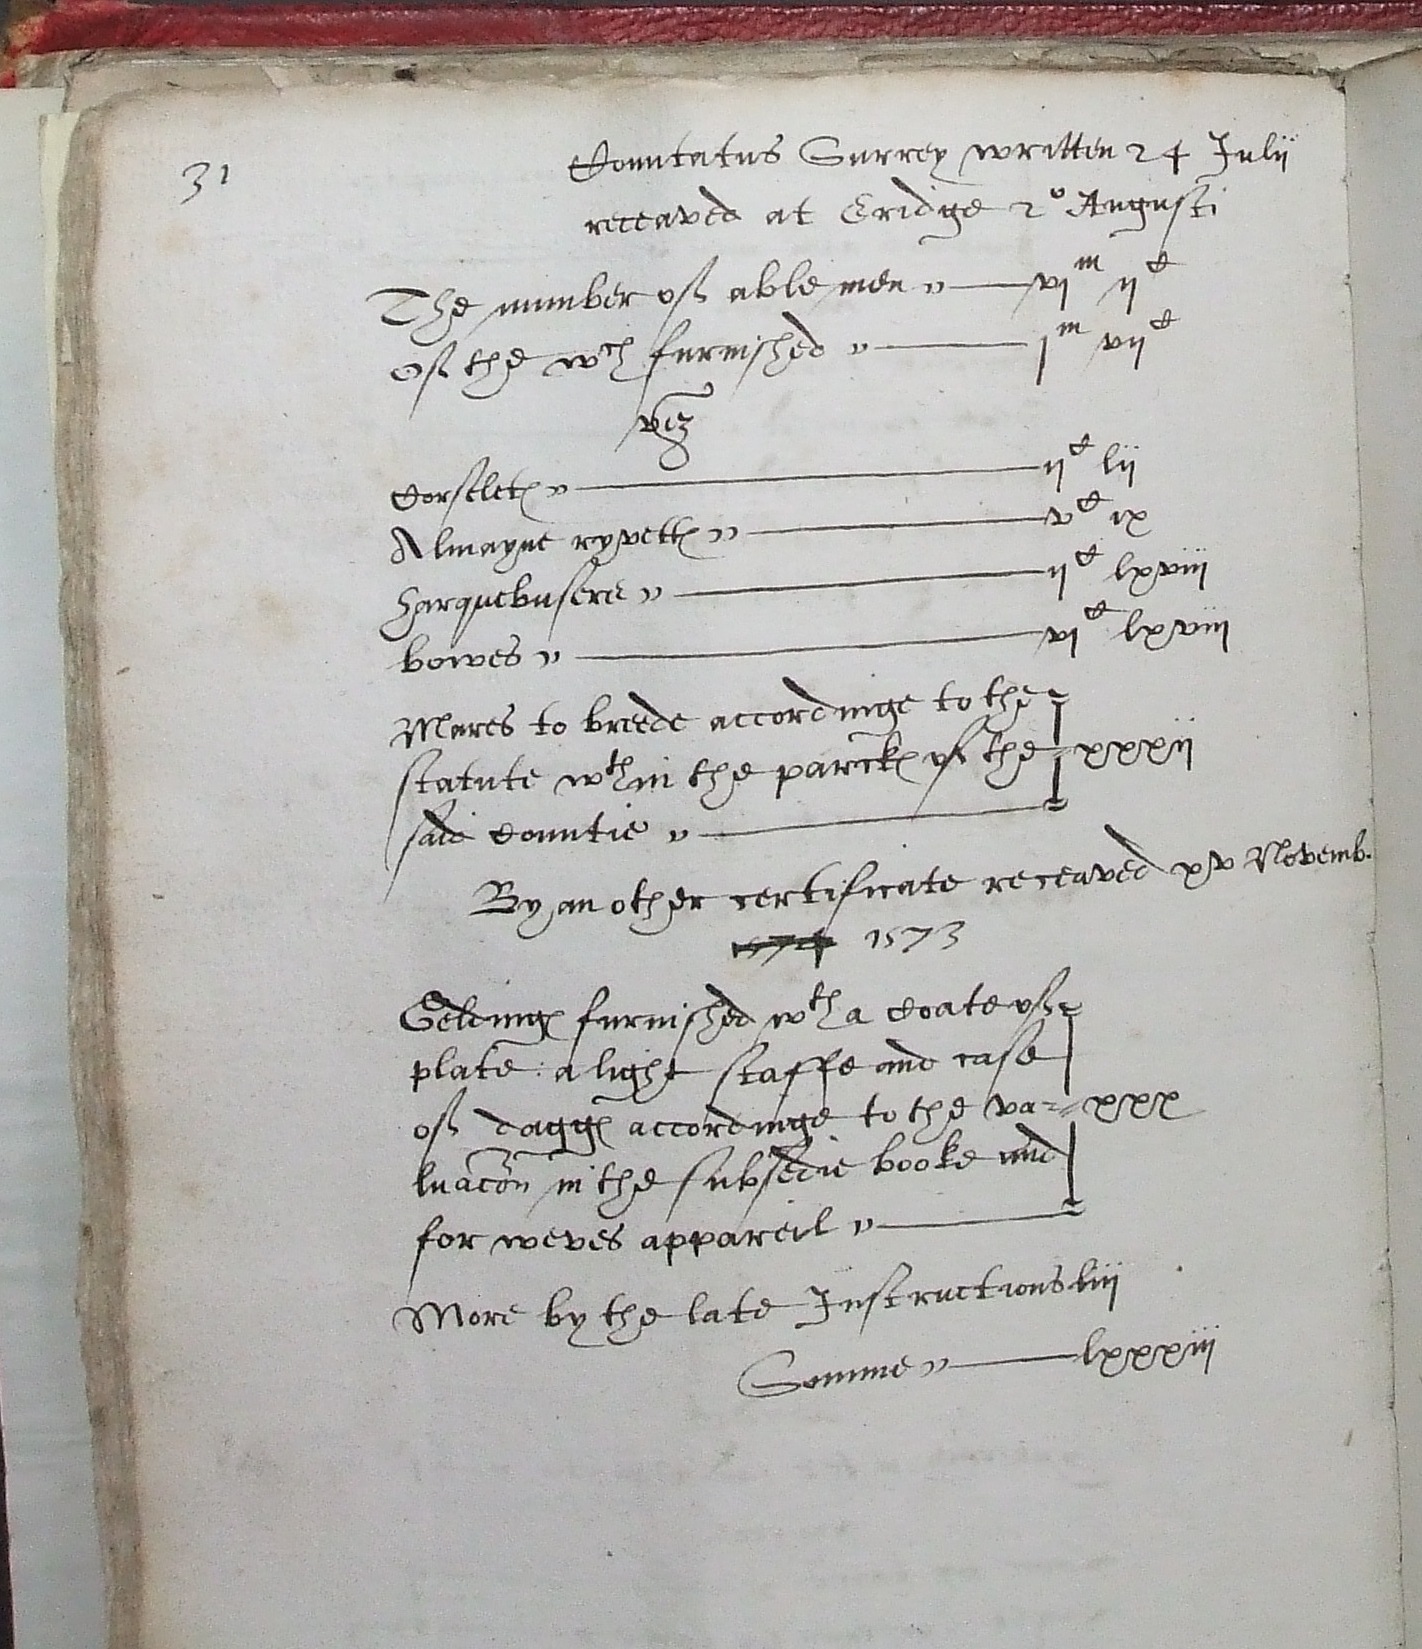 31
Countatus Surrey written 24 Julij
receaved at Eridge 2º Augusti
The number of able men „ vjᵐ ijᶜ
Of the wᶜh furnished „ jᵐ vijᶜ
vez
Corseletes „ ijᶜ lij
Almayne ryvettes „ vᶜ ix
Harquebusere „ ijᶜ lxviij
bowes „ vjᶜ lxviij
Mares to breede accordinge to the
statute wᵗhin the parckes of the xxxij
said Countie „
By an other certificate receaved xv Novemb.
1574 1573
Geldinges furnished wᵗh a Coate of
plate : a light staffe and case
of dagges accordinge to the va= xxx
luacon in the subsedie booke and
for weves appareil „
More by the late Instructions liij
Somme „ lxxxiij